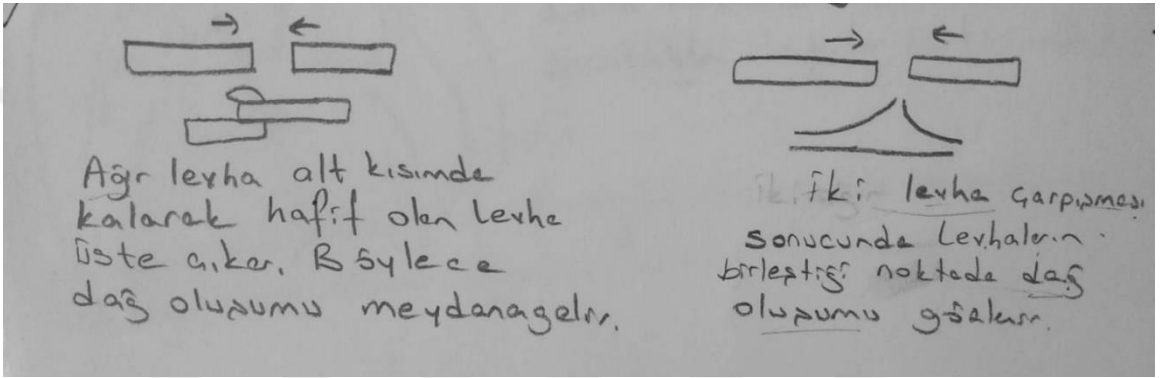 Ağr levha alt kısımda
kalarak hafif olan levha
üste çıkar. Böylece
dağ oluşumu meydanagelir.
İki levha çarpışması
sonucunda levhaların
birleştiği noktada dağ
oluşumu gözlenir.